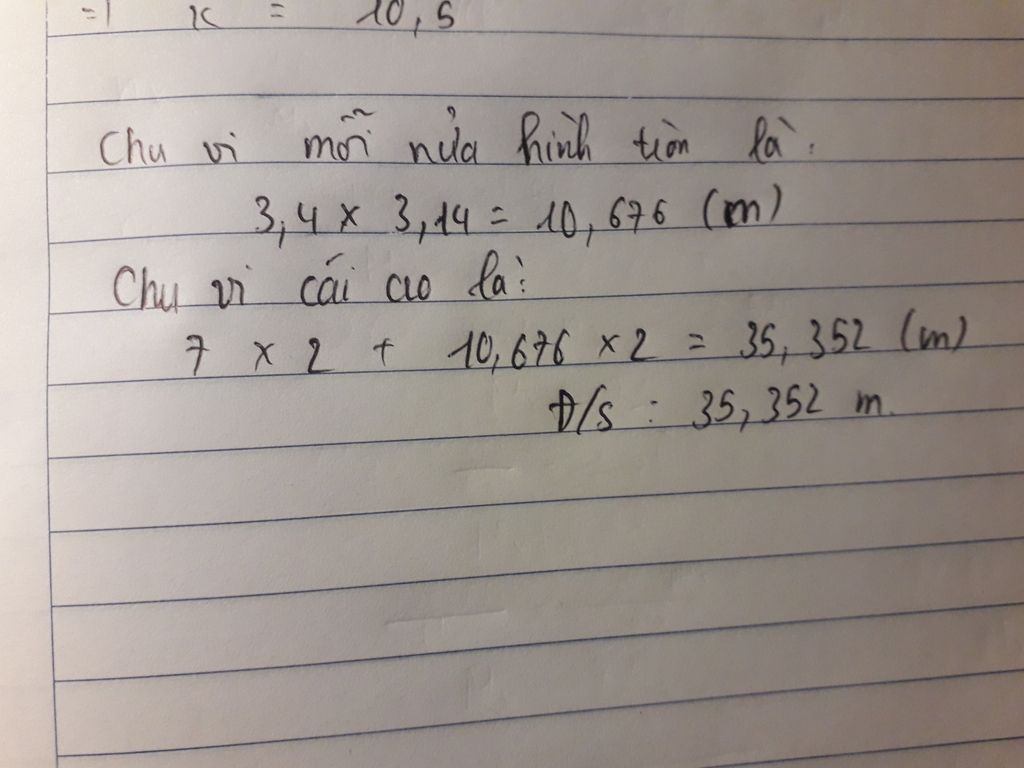 =) x = 10,5
Chu vi mỗi nửa hình tròn là:
3,4 x 3,14 = 10,676 (m)
Chu vi cái ao là:
7 x 2 + 10,676 x 2 = 35,352 (m)
Đ/s : 35,352 m.